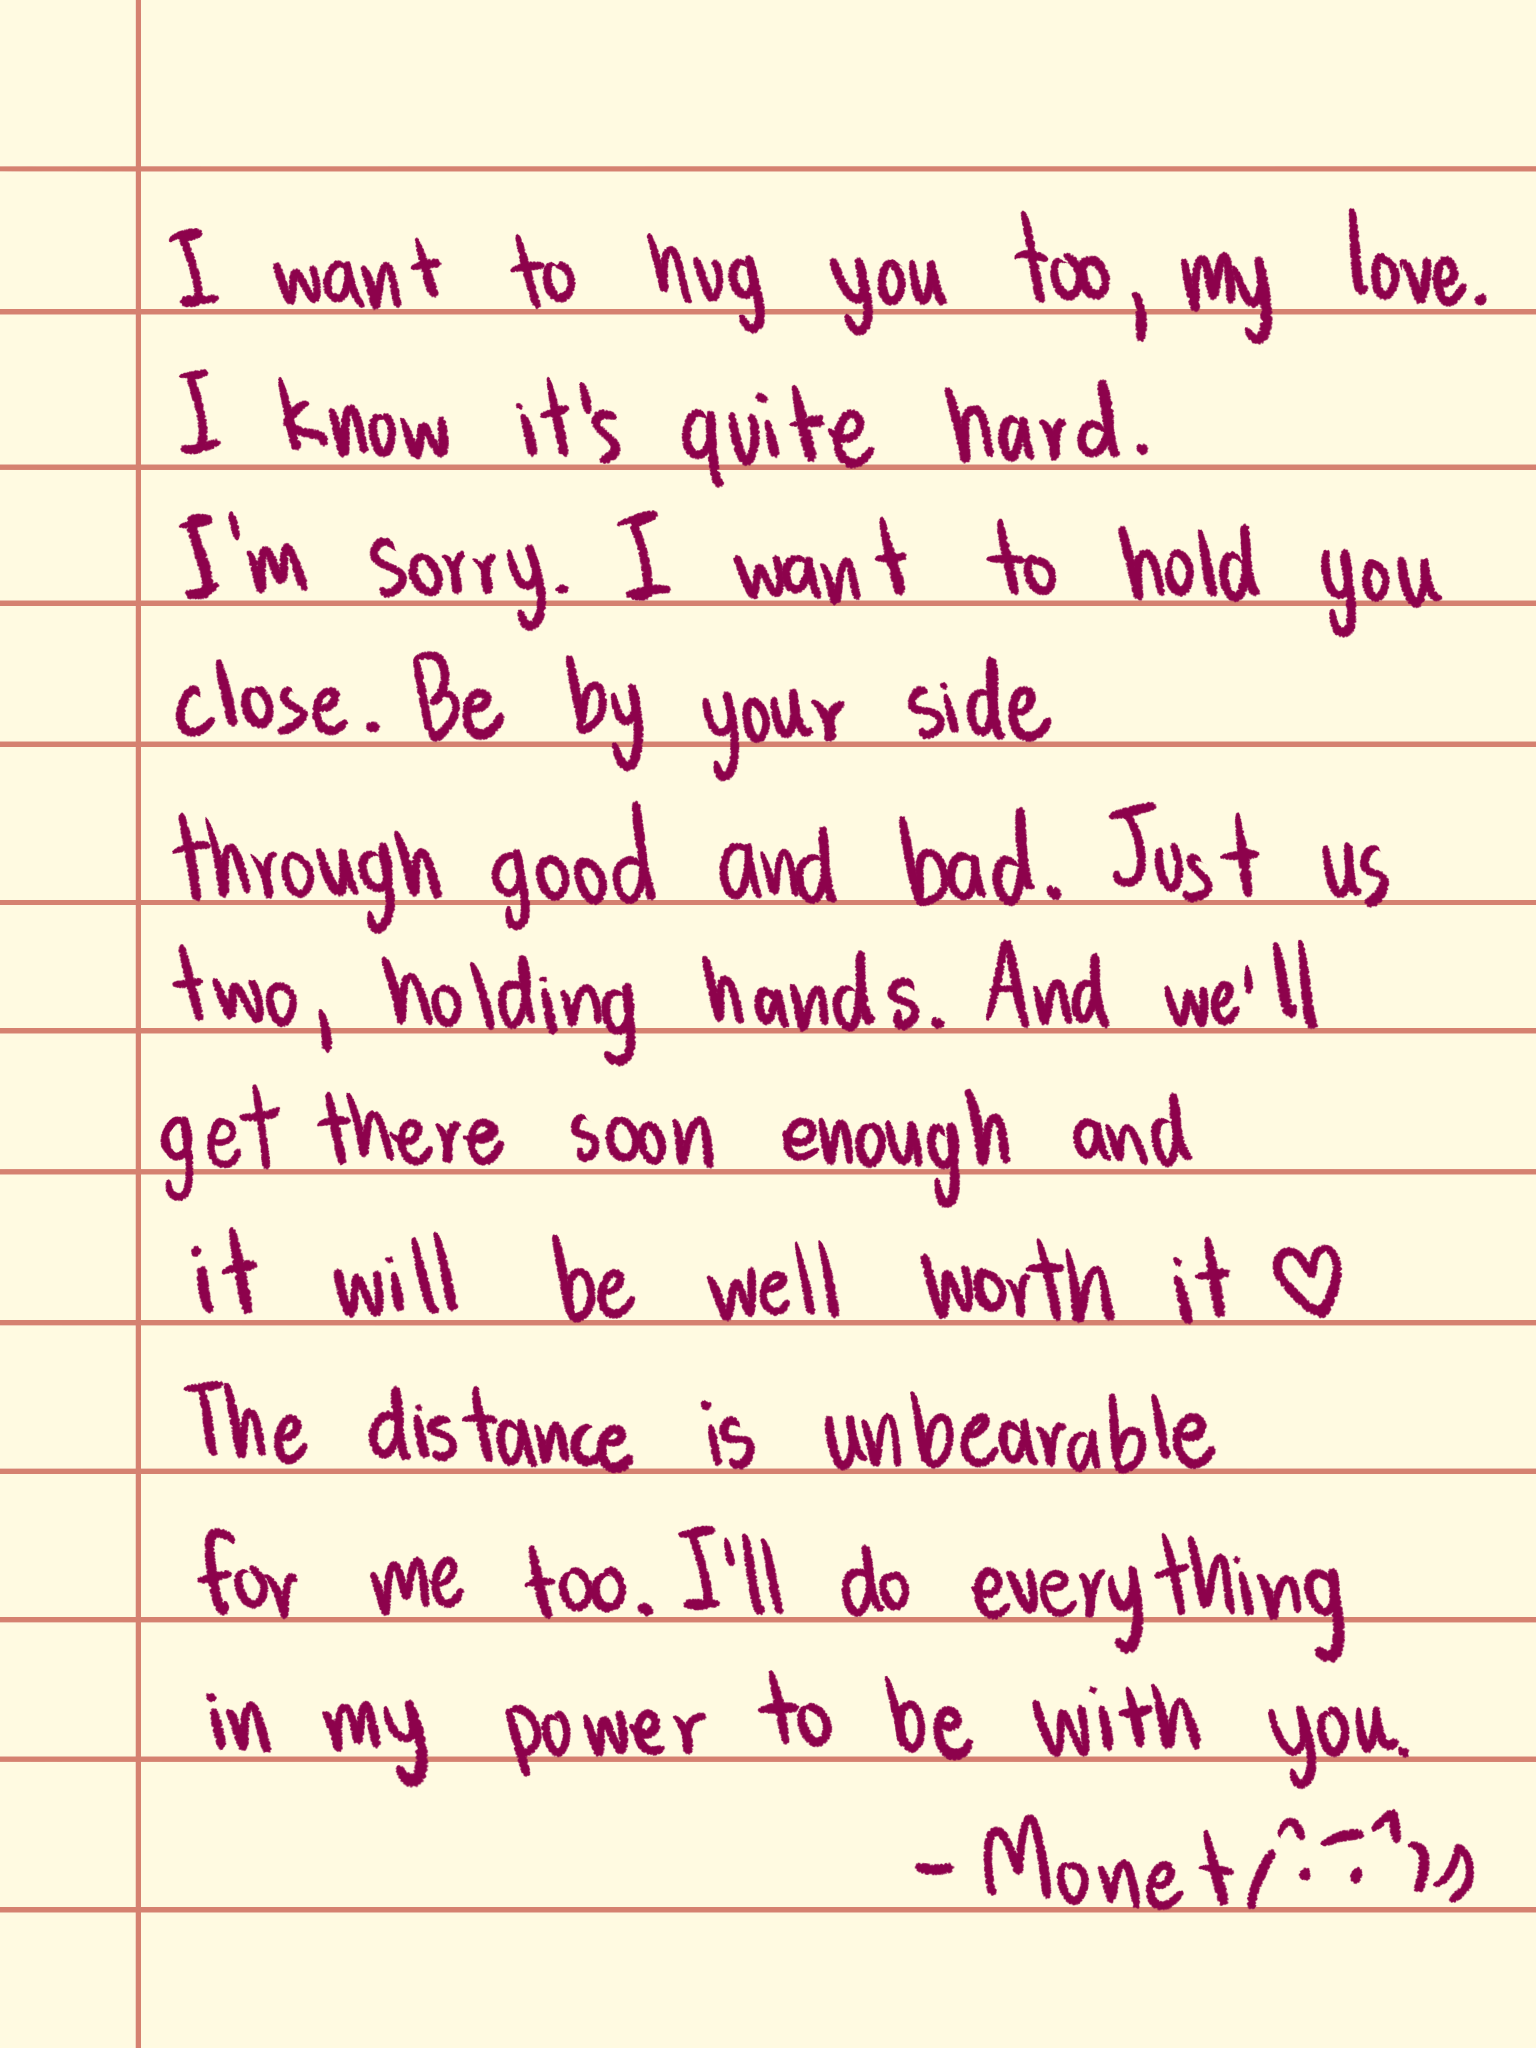 I want to hug you too, my love.
I know it's quite hard.
I'm sorry. I want to hold you
close. Be by your side
through good and bad. Just us
two, holding hands. And we'll
get there soon enough and
it will be well worth it ♡
The distance is unbearable
for me too. I'll do everything
in my power to be with you.
- Monet